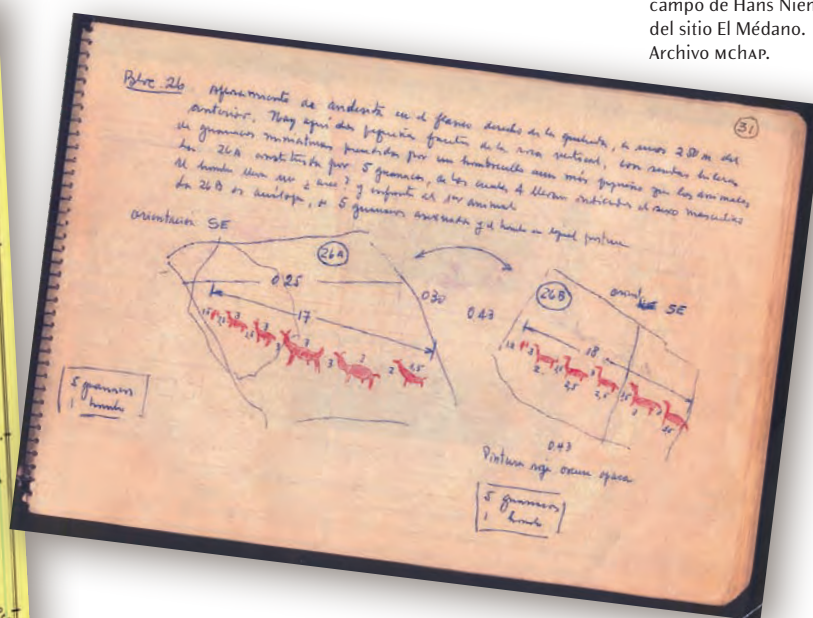 campo de Hans Niem
del sitio El Médano.
Archivo MCHAP.
31
Bloc. 26. Afloramiento de andesita en el flanco derecho de la quebrada, a unos 280 m del
anterior. Hay aquí dos pequeñas de la roca vertical, con sendas
de guanacos miniaturas por un hombrecillo aun más pequeño que los animales
La 26A constituida por 5 guanacos, de los cuales 4 llevan indicados el sexo masculino
El hombre lleva un ¿ arco ? y el 1er animal
La 26B es análoga, 5 guanacos y el hombre en igual postura
orientación SE
26A
0.25
030
17
0.43
26B
SE
18
1,5
3
2
2,5
5 guanacos
1 hombre
0.43
Pintura roja oscura opaca
5 guanacos
1 hombre